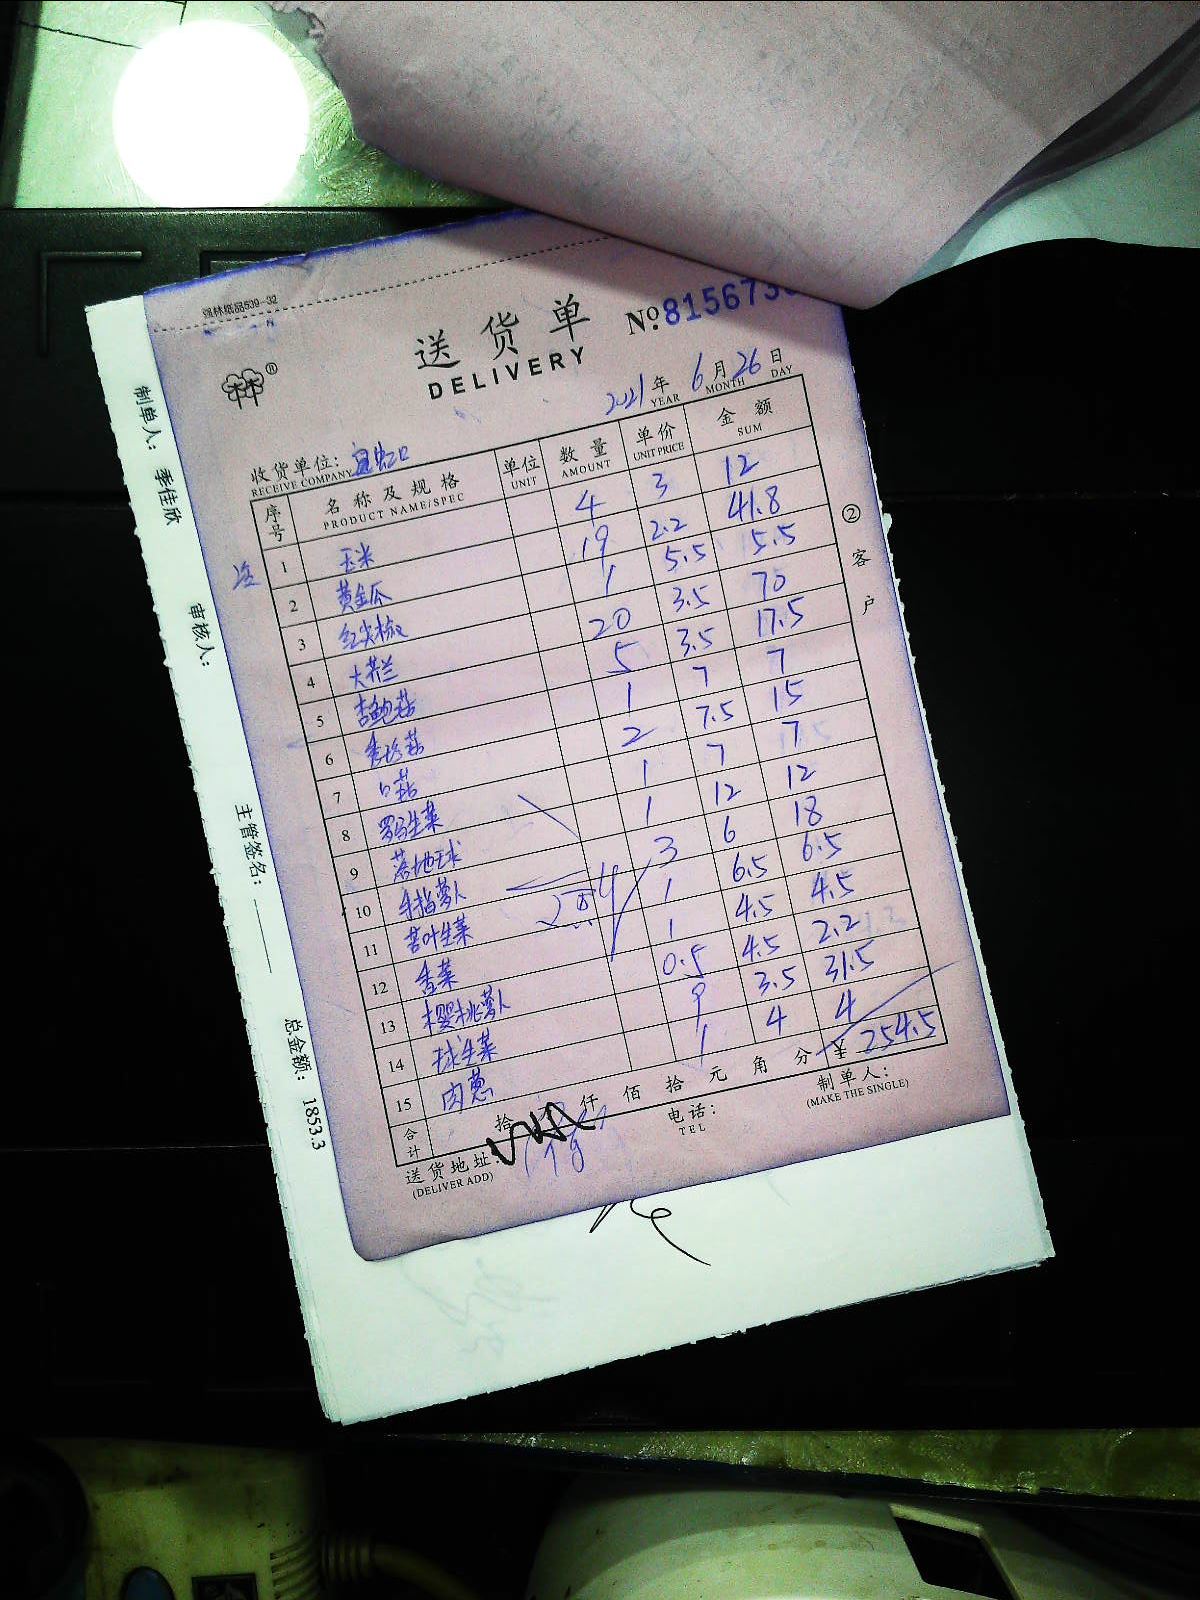 强林纸品539-32
送货单 No.815673
DELIVERY
2021年 6月 26日
YEAR MONTH DAY
收货单位:
RECEIVE COMPANY
序号 名称及规格 单位 数量 单价 金额
PRODUCT NAME/SPEC UNIT AMOUNT UNIT PRICE SUM
1 玉米 4 3 12
2 黄金瓜 19 2.2 41.8
3 红尖椒 1 5.5 5.5
4 大芥兰 20 3.5 70
5 杏鲍菇 5 3.5 17.5
6 秀珍菇 1 7 7
7 口菇 2 7.5 15
8 罗马生菜 1 7 7
9 落地球 1 12 12
10 手指萝卜 3 6 18
11 苦叶生菜 1 6.5 6.5
12 香菜 1 4.5 4.5
13 樱桃萝卜 0.5 4.5 2.2
14 球生菜 9 3.5 31.5
15 肉葱 1 4 4
合计 拾 仟 佰 拾 元 角 分 ¥ 254.5
送货地址: 电话: 制单人:
(DELIVER ADD) TEL (MAKE THE SINGLE)
② 客户
制单人: 季佳欣 审核人: 主管签名: 总金额: 1853.3